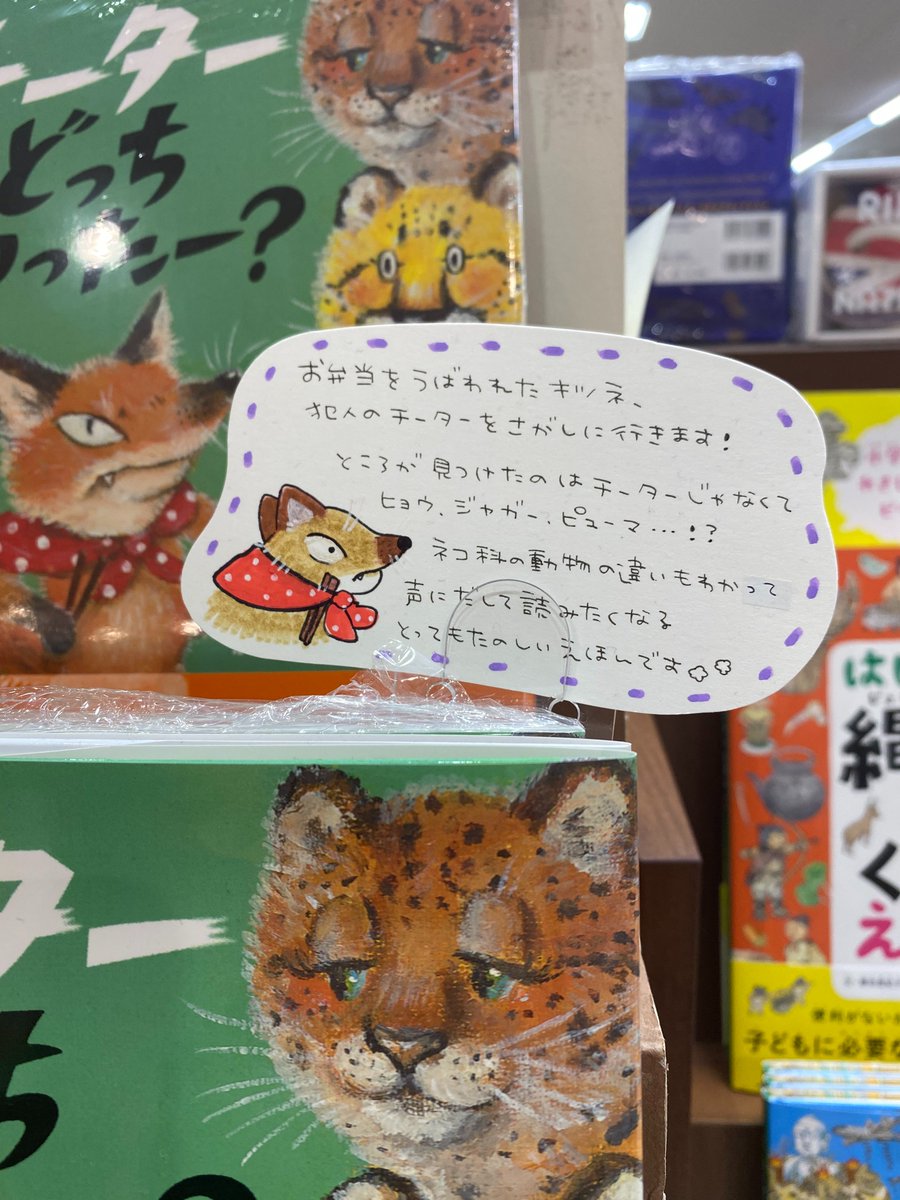 ーター
どっち
ったー?
お弁当をうばわれたキツネ、
犯人のチーターをさがしに行きます!
ところが見つけたのはチーターじゃなくて
ヒョウ、ジャガー、ピューマ…!?
ネコ科の動物の違いもわかって
声にだして読みたくなる
とってもたのしいえほんです
ター
ち
は
く
え
子どもに必要な